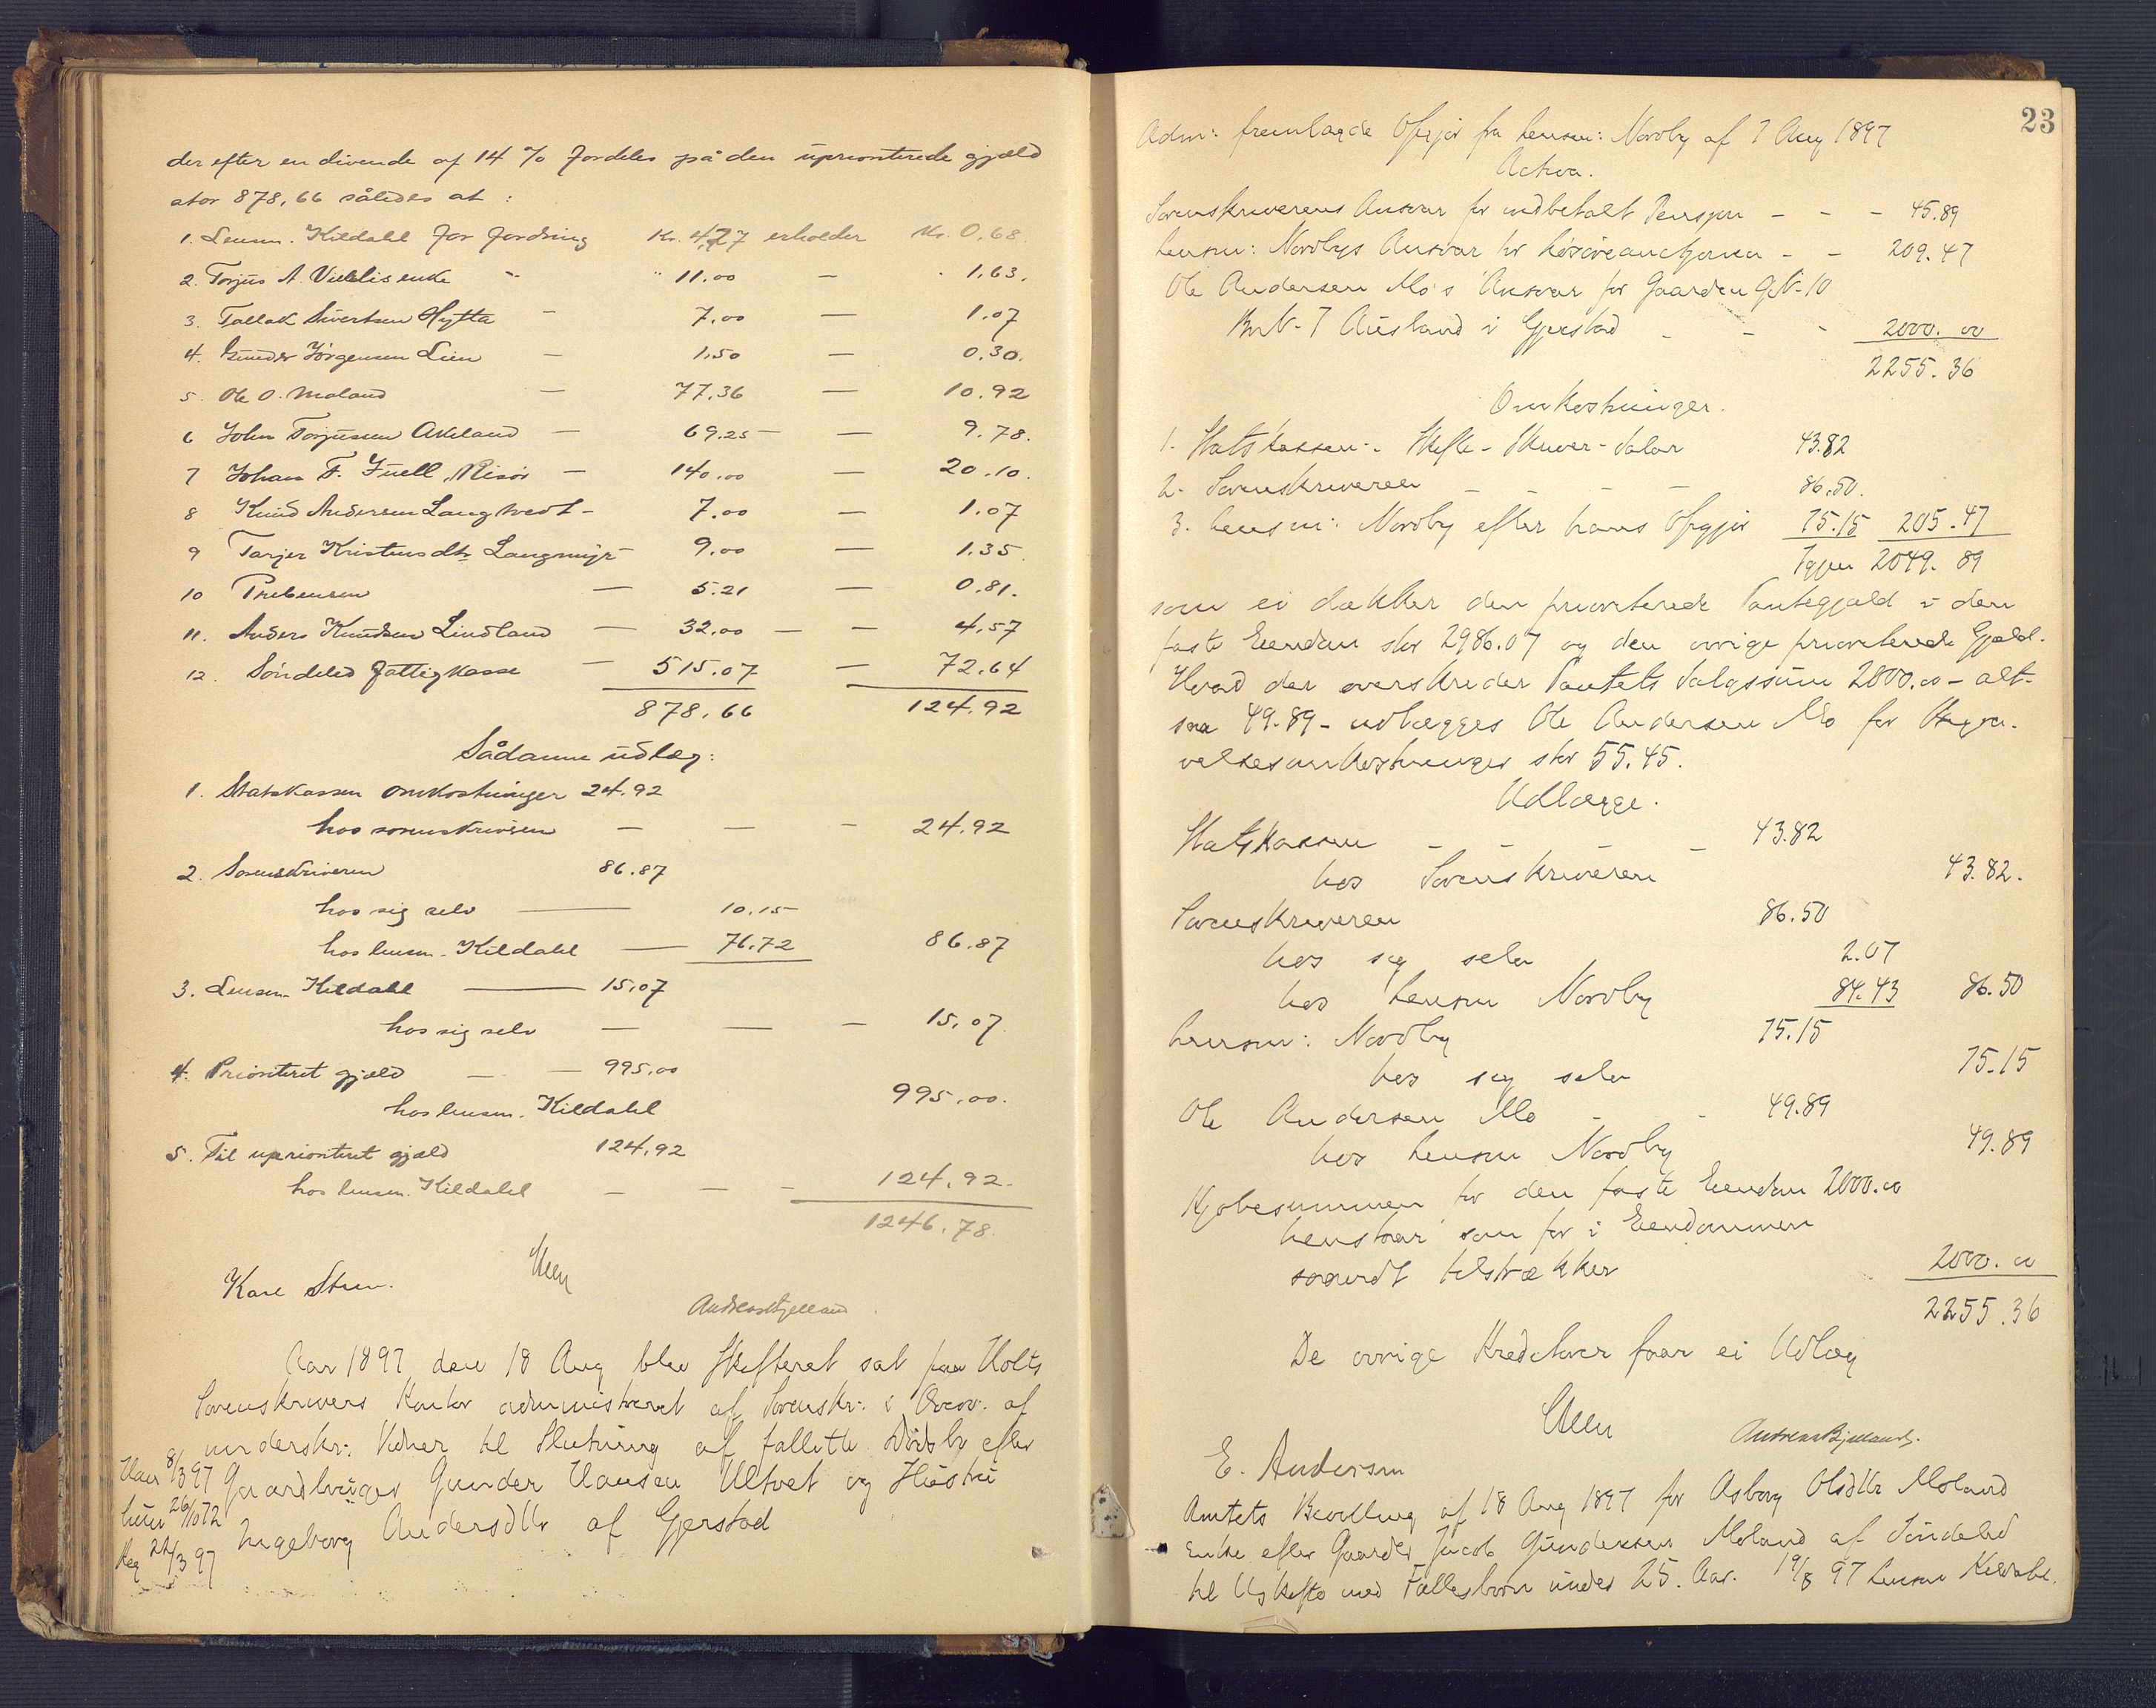 der efter en divende af 14 % fordeles på den uprioriterede gjæld
stor 878,66 således at :
1. Lensm. Kildahl for fordring Kr. 4,27 erholder Kr. 0,68.
2. Torjus A. enke " " 11.00 — " 1,63.
3. Tallak Sivertsen Hytta — 7,00 — 1.07
4. Gunder Jörgensen Lien — 1,50 — 0.30.
5. Ole O. Moland — 77,36 — 10.92
6 John Torjussen Akeland — 69.25 — 9.78.
7 Johan F. Juell, Risör — 140.00 — 20.10.
8 Knud Andersen Langtvedt — 7.00 — 1.07
9 Tarjer Kristensdtr Langmyr 9.00 — 1.35
10 Prebensen — 5.21 — 0.81.
11. Anders Knudsen Lindland — 32.00 — 4.57
12. Söndeled fattigkasse — 515.07 — 72.64
878,66 124.92
Sådanne udlæg:
1. Statskassen omkostninger 24.92
hos sorenskriveren — — — 24.92
2. Sorenskriveren 86.87
hos sig selv — 10.15
hos lensm. Kildahl — 76.72 86.87
3. Lensm. Kildahl — 15,07
hos sig selv — — — 15,07
4. Prioriteret gjæld — — 995,00
hos lensm. Kildahl 995,00.
5. Til uprioriteret gjæld 124,92
hos lensm. Kildahl — — — 124,92.
1246.78.
Karl Steen.
Andreas Bjelland
Aar 1897 den 18 Aug blev Skifteret sat paa Holts
Sorenskrivers Kontor administreret af Sorenskr: i Overv. af
underskr: Vidner til Slutning af fallitte Dödsbo efter
Han 8/3 97 Gaardbruger Gunder Hansen Ultvet og Hustru
hun 26/10 72
Ingeborg Andersdtr af Gjerstad
Reg 22/3 97
23
Adm: fremlagde Opgjör fra Lensm: Nordby af 7 Aug 1897
Activa.
Sorenskriverens Ansvar for indbetalt Penger — — — 45.89
Lensm: Nordbys Ansvar for Lösöreauctionen — — 209.47
Ole Andersen Mo's Ansvar for Gaarden GN-10
BrN-7 Ausland i Gjerstad — — — 2000.00
2255.36
Omkostninger.
1. Statskassen: Skifte-Skriver-Salær 43.82
2. Sorenskriveren — — — — 86.50.
3. Lensm: Nordby efter hans Opgjör 75.15 205.47
Igjen 2049.89
som ei dækker den prioriterede Pantegjæld i den
faste Eiendom stor 2986.07 og den övrige prioriterede Gjæld.
Hvad der overskrider Pantets Salgssum 2000.00 - alt-
saa 49.89 - udlægges Ole Andersen Mo for Begra-
velsesomkostninger stor 55.45.
Udlægge.
Statskassen — — — — 43.82
hos Sorenskriveren 43.82.
Sorenskriveren 86.50
hos sig selv 2.07
hos Lensm Nordby 84.43 86.50
Lensm: Nordby 75.15
hos sig selv 75.15
Ole Andersen Mo — — 49.89
hos Lensm Nordby 49.89
Kjöbesummen for den faste Eiendom 2000.00
henstaar som för i Eiendommen
saavidt tilstrækker 2000.00
2255.36
De övrige Kreditorer faar ei Udlæg
Andreas Bjelland.
E. Andersen
Amtets Bevilling af 18 Aug 1897 for Asborg Olsdtr Moland
Enke efter Gaardbr Jacob Gundersen Moland af Söndeled
til Uskifte med Fællesbörn under 25. Aar. 19/8 97 Lensm Kildahl.